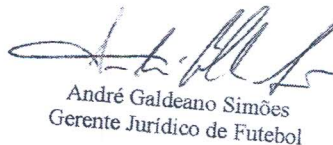 André Galdeano Simões
Gerente Jurídico de Futebol